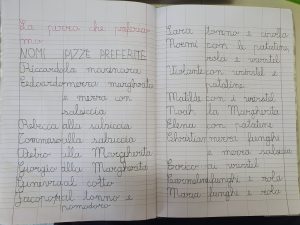 La pizza che preferia
mo
NOMI PIZZE PREFERITE
Riccardo la marinara
Edoardo mezza margherita
e mezza con
salsiccia
Rebecca alla salsiccia
Tommaso alla salsiccia
Pietro alla Margherita
Giorgio alla Margherita
Ginevra al cotto
Giacomo al tonno e
pomodoro
Sara tonno e cipolla
Noemi con le patatine,
e würstel
Violante con würstel e
patatine
Matilde con i würstel
Noah la Margherita
Elena con patatine
Christian mezza funghi
e mezza salsiccia
Enrico ai würstel
funghi e
Maria funghi e